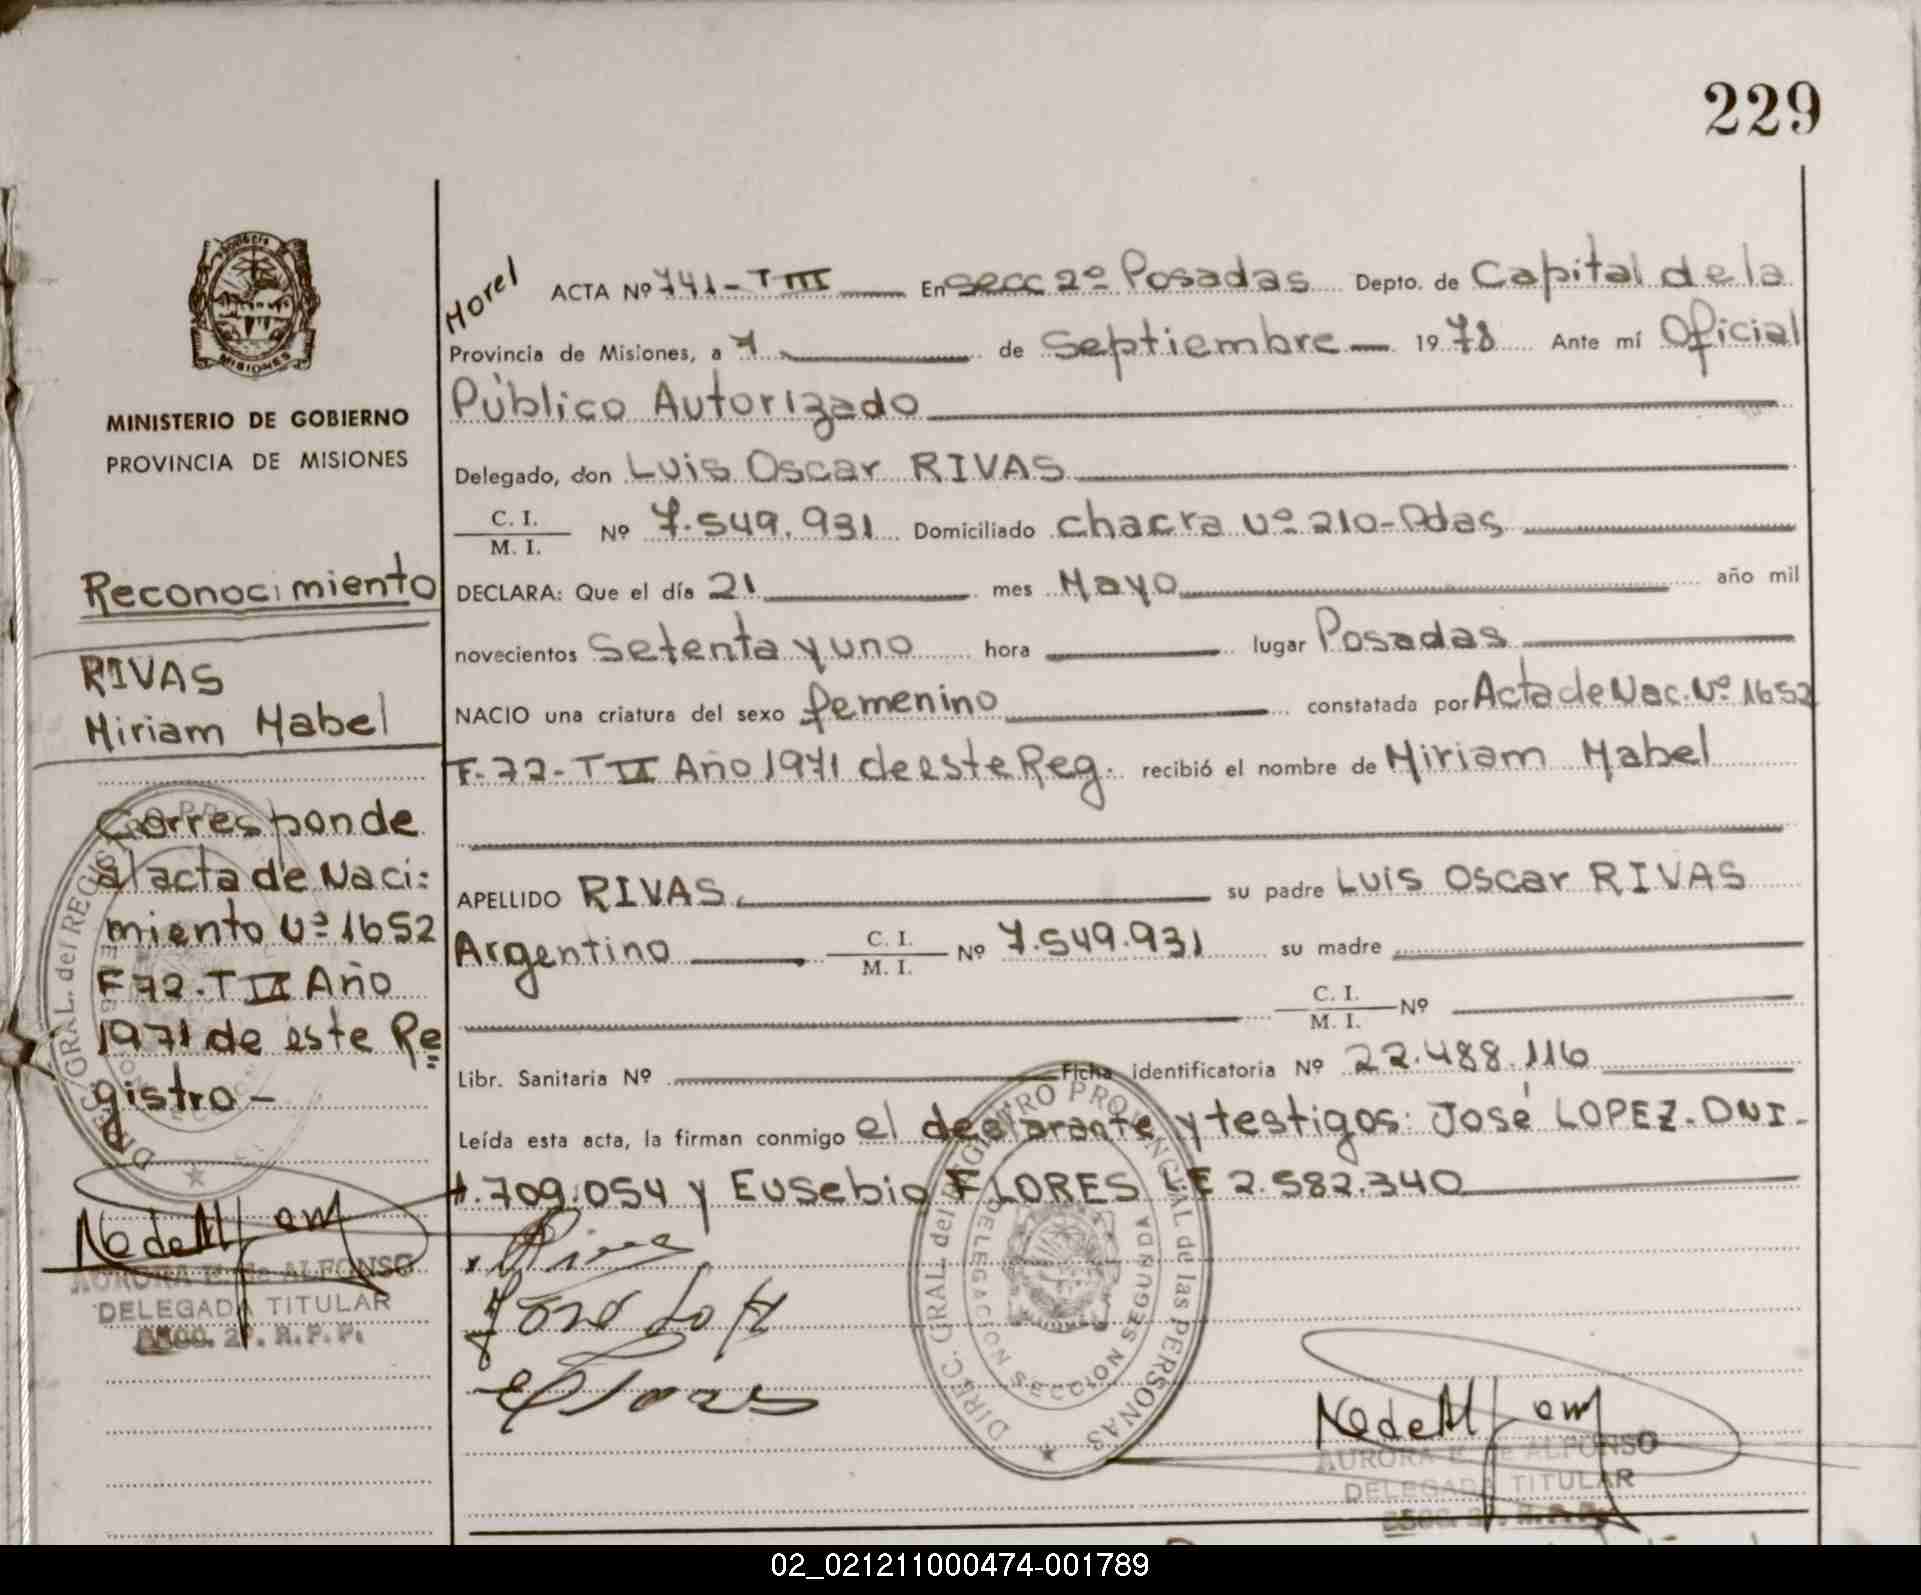 229
MISIONES
MINISTERIO DE GOBIERNO
PROVINCIA DE MISIONES
Reconocimiento
RIVAS
Miriam Mabel
Corresponde
al acta de Naci=
miento Nº 1652
F 72. T IX Año
1971 de este Re=
gistro -
AURORA E. de ALFONSO
DELEGADA TITULAR
SECC. 2ª. R.P.P.
Morel ACTA Nº 741 - T III En Secc 2º Posadas Depto. de Capital de la
Provincia de Misiones, a 7 de Septiembre 19 78 Ante mí Oficial
Público Autorizado
Delegado, don Luis Oscar RIVAS
C. I. / M. I. Nº 7.549.931 Domiciliado chacra Nº 210 - Pdas
DECLARA: Que el día 21 mes Mayo año mil
novecientos setenta y uno hora lugar Posadas
NACIO una criatura del sexo femenino constatada por Acta de Nac. Nº 1652
F-72-T IX Año 1971 de este Reg. recibió el nombre de Miriam Mabel
APELLIDO RIVAS su padre Luis Oscar RIVAS
Argentino C. I. / M. I. Nº 7.549.931 su madre
C. I. / M. I. Nº
Libr. Sanitaria Nº Ficha identificatoria Nº 22.488.116
Leída esta acta, la firman conmigo el declarante y testigos: José LOPEZ-DNI-
1.709.054 y Eusebio FLORES LE 2.582.340
Rivas
EFlores
DIREC. GRAL. del REGISTRO PROVINCIAL de las PERSONAS
DELEGACION SECCION SEGUNDA
AURORA E. de ALFONSO
DELEGADA TITULAR
02_021211000474-001789